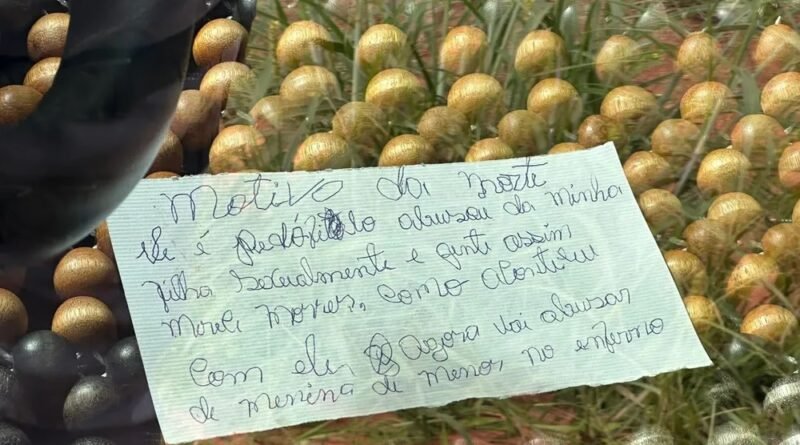 Motivo da morte
ele é pedófilo abusou da minha
filha sexualmente e gente assim
merece morrer, como aconteceu
com ele Agora vai abusar
de menina de menor no inferno